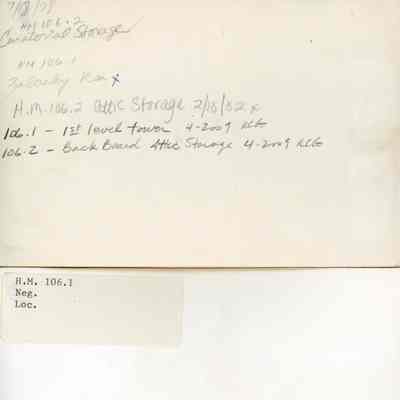 7/18/78
HM 106.2
Curatorial Storage
HM 106.1
x
H.M. 106.2 attic Storage 2/18/82 x
106.1 - 1st level tower 4-2009 KLG
106.2 - Back Board Attic Storage 4-2009 KLG
H.M. 106.1
Neg.
Loc.